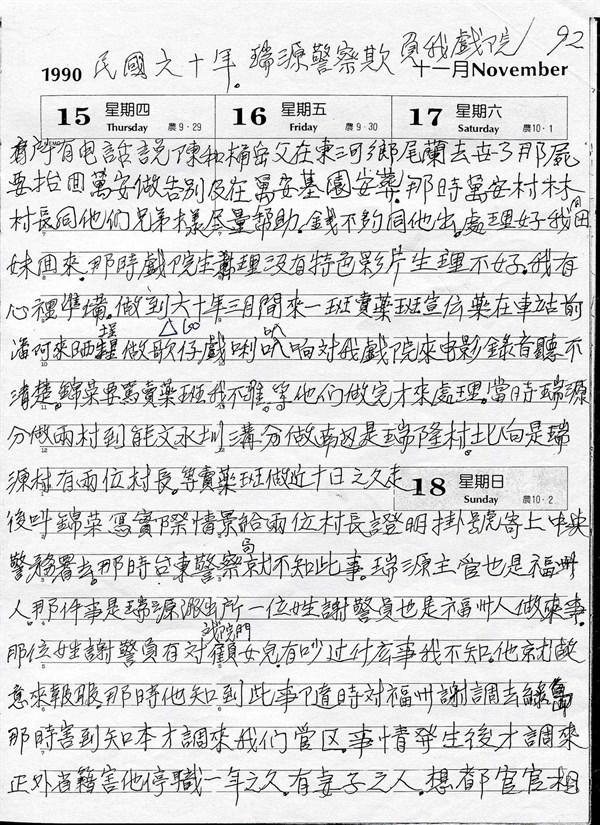 92
民國六十年。瑞源警察欺負我戲院
1990 十一月November
15 星期四 Thursday 農9·29
16 星期五 Friday 農9·30
17 星期六 Saturday 農10·1
有電話說陳和桶岳父在東河鄉尾蘭去世了那屍
要抬回萬安做告別及在萬安墓園安葬。那時萬安村林
村長同他们兄弟樣尽量幫助。錢不夠同他出。處理好我同田
妹回來。那時戲院生理没有特色影片生理不好。我有
心裡準備。做到六十年三月間來一班賣藥班宣伝藥在車站前
潘阿來晒場做歌仔戲喇叭响対我戲院來电影錄音聽不
清楚。錦菜要罵賣藥班我不准。等他们做完才來處理。當時瑞源
分做兩村到能文水圳溝分做南边是瑞隆村。北向是瑞
源村有兩位村長。等賣藥班做近十日之久走
18 星期日 Sunday 農10·2
後叫錦菜寫實際情景給兩位村長證明掛號寄上中央
警務署去。那時台東警察局就不知此事。瑞源主管也是福州
人。那件事是瑞源派出所一位姓謝警員也是福州人做來事。
那位姓謝警員有対戲院門顧女兒。有吵过什庅事我不知。他就故
意來報服那時他知到此事隨時対福州謝調去綠島
那時害到知本才調來我们管区。事情發生後才調來
正外省籍害他停職一年之久。有妻子之人。想都官官相